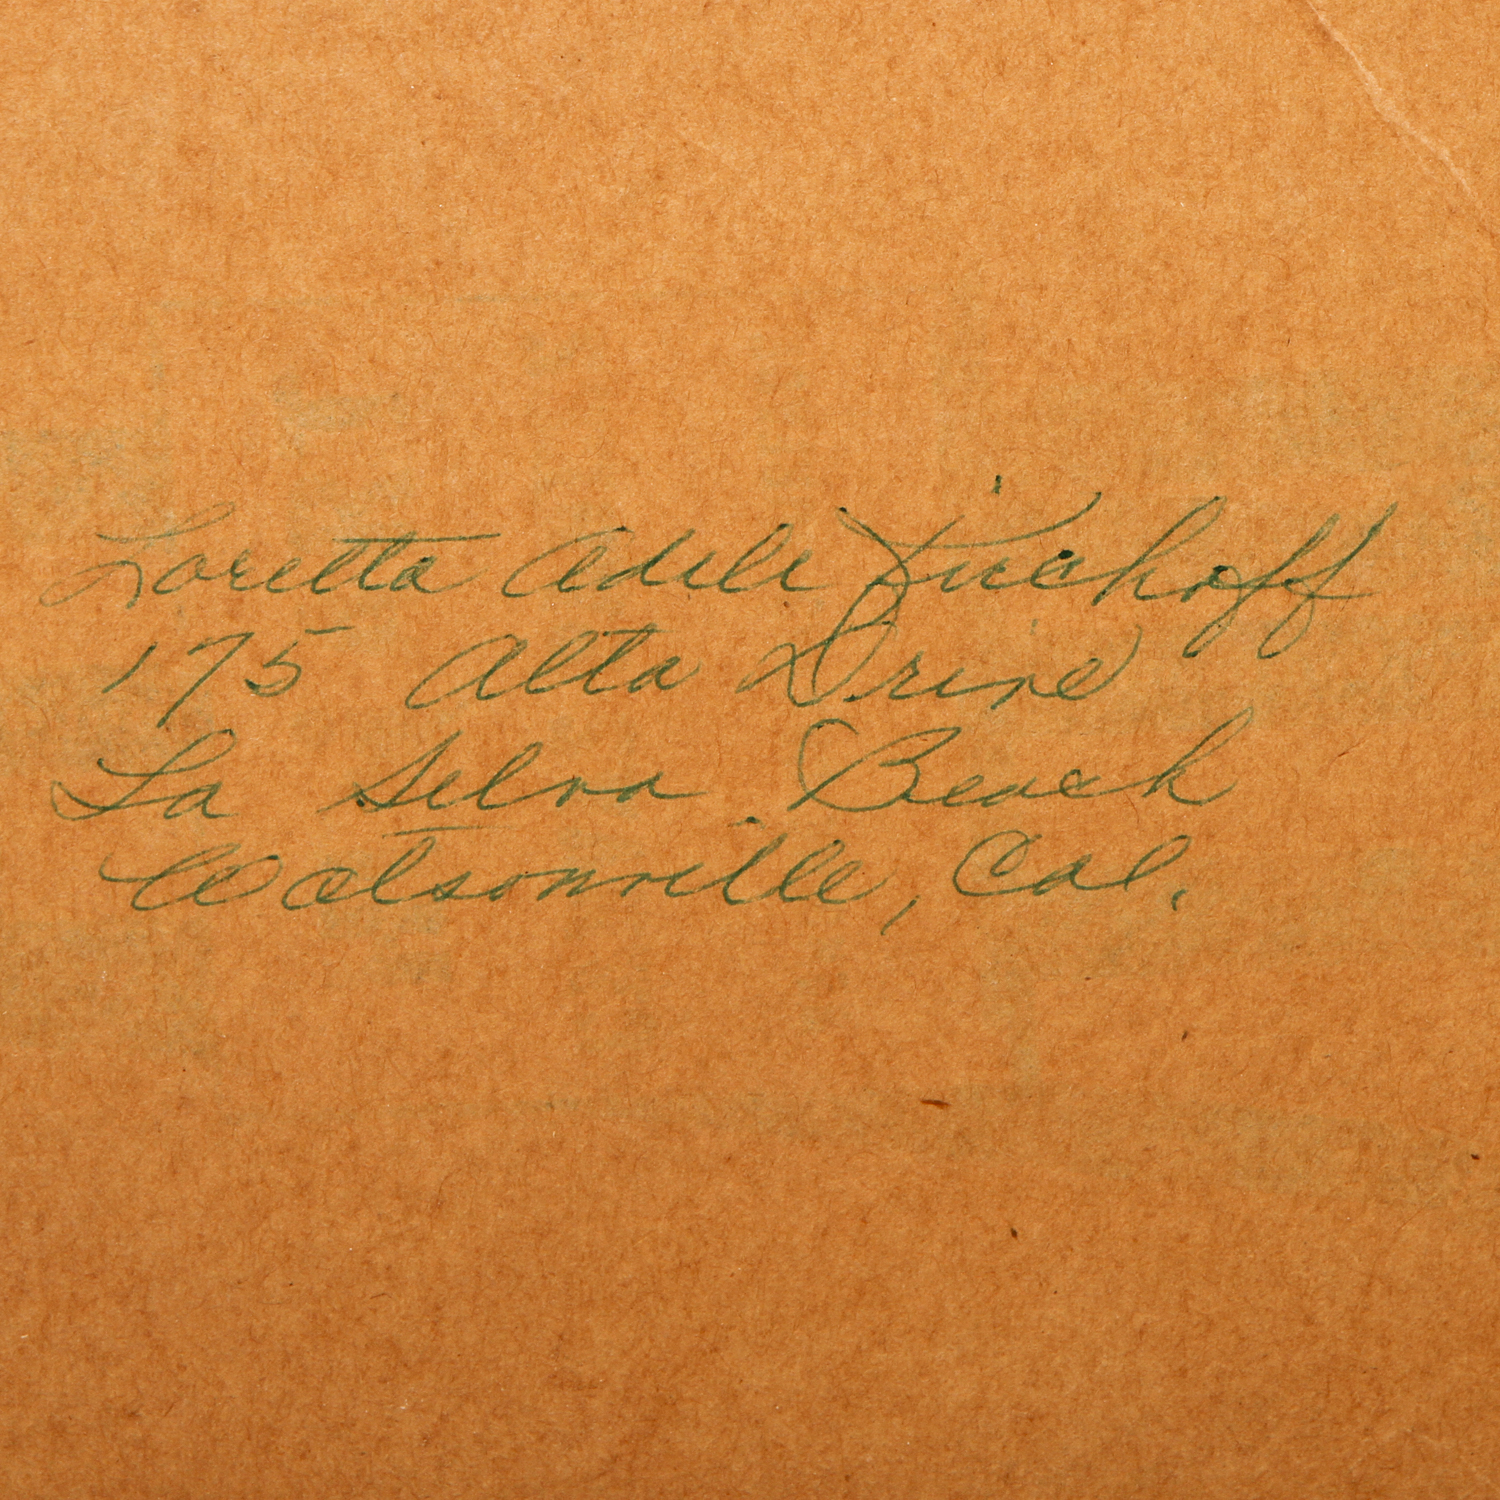 Loretta Adele Kirchoff
175 Alta Drive
La Selva Beach
Watsonville, Cal.